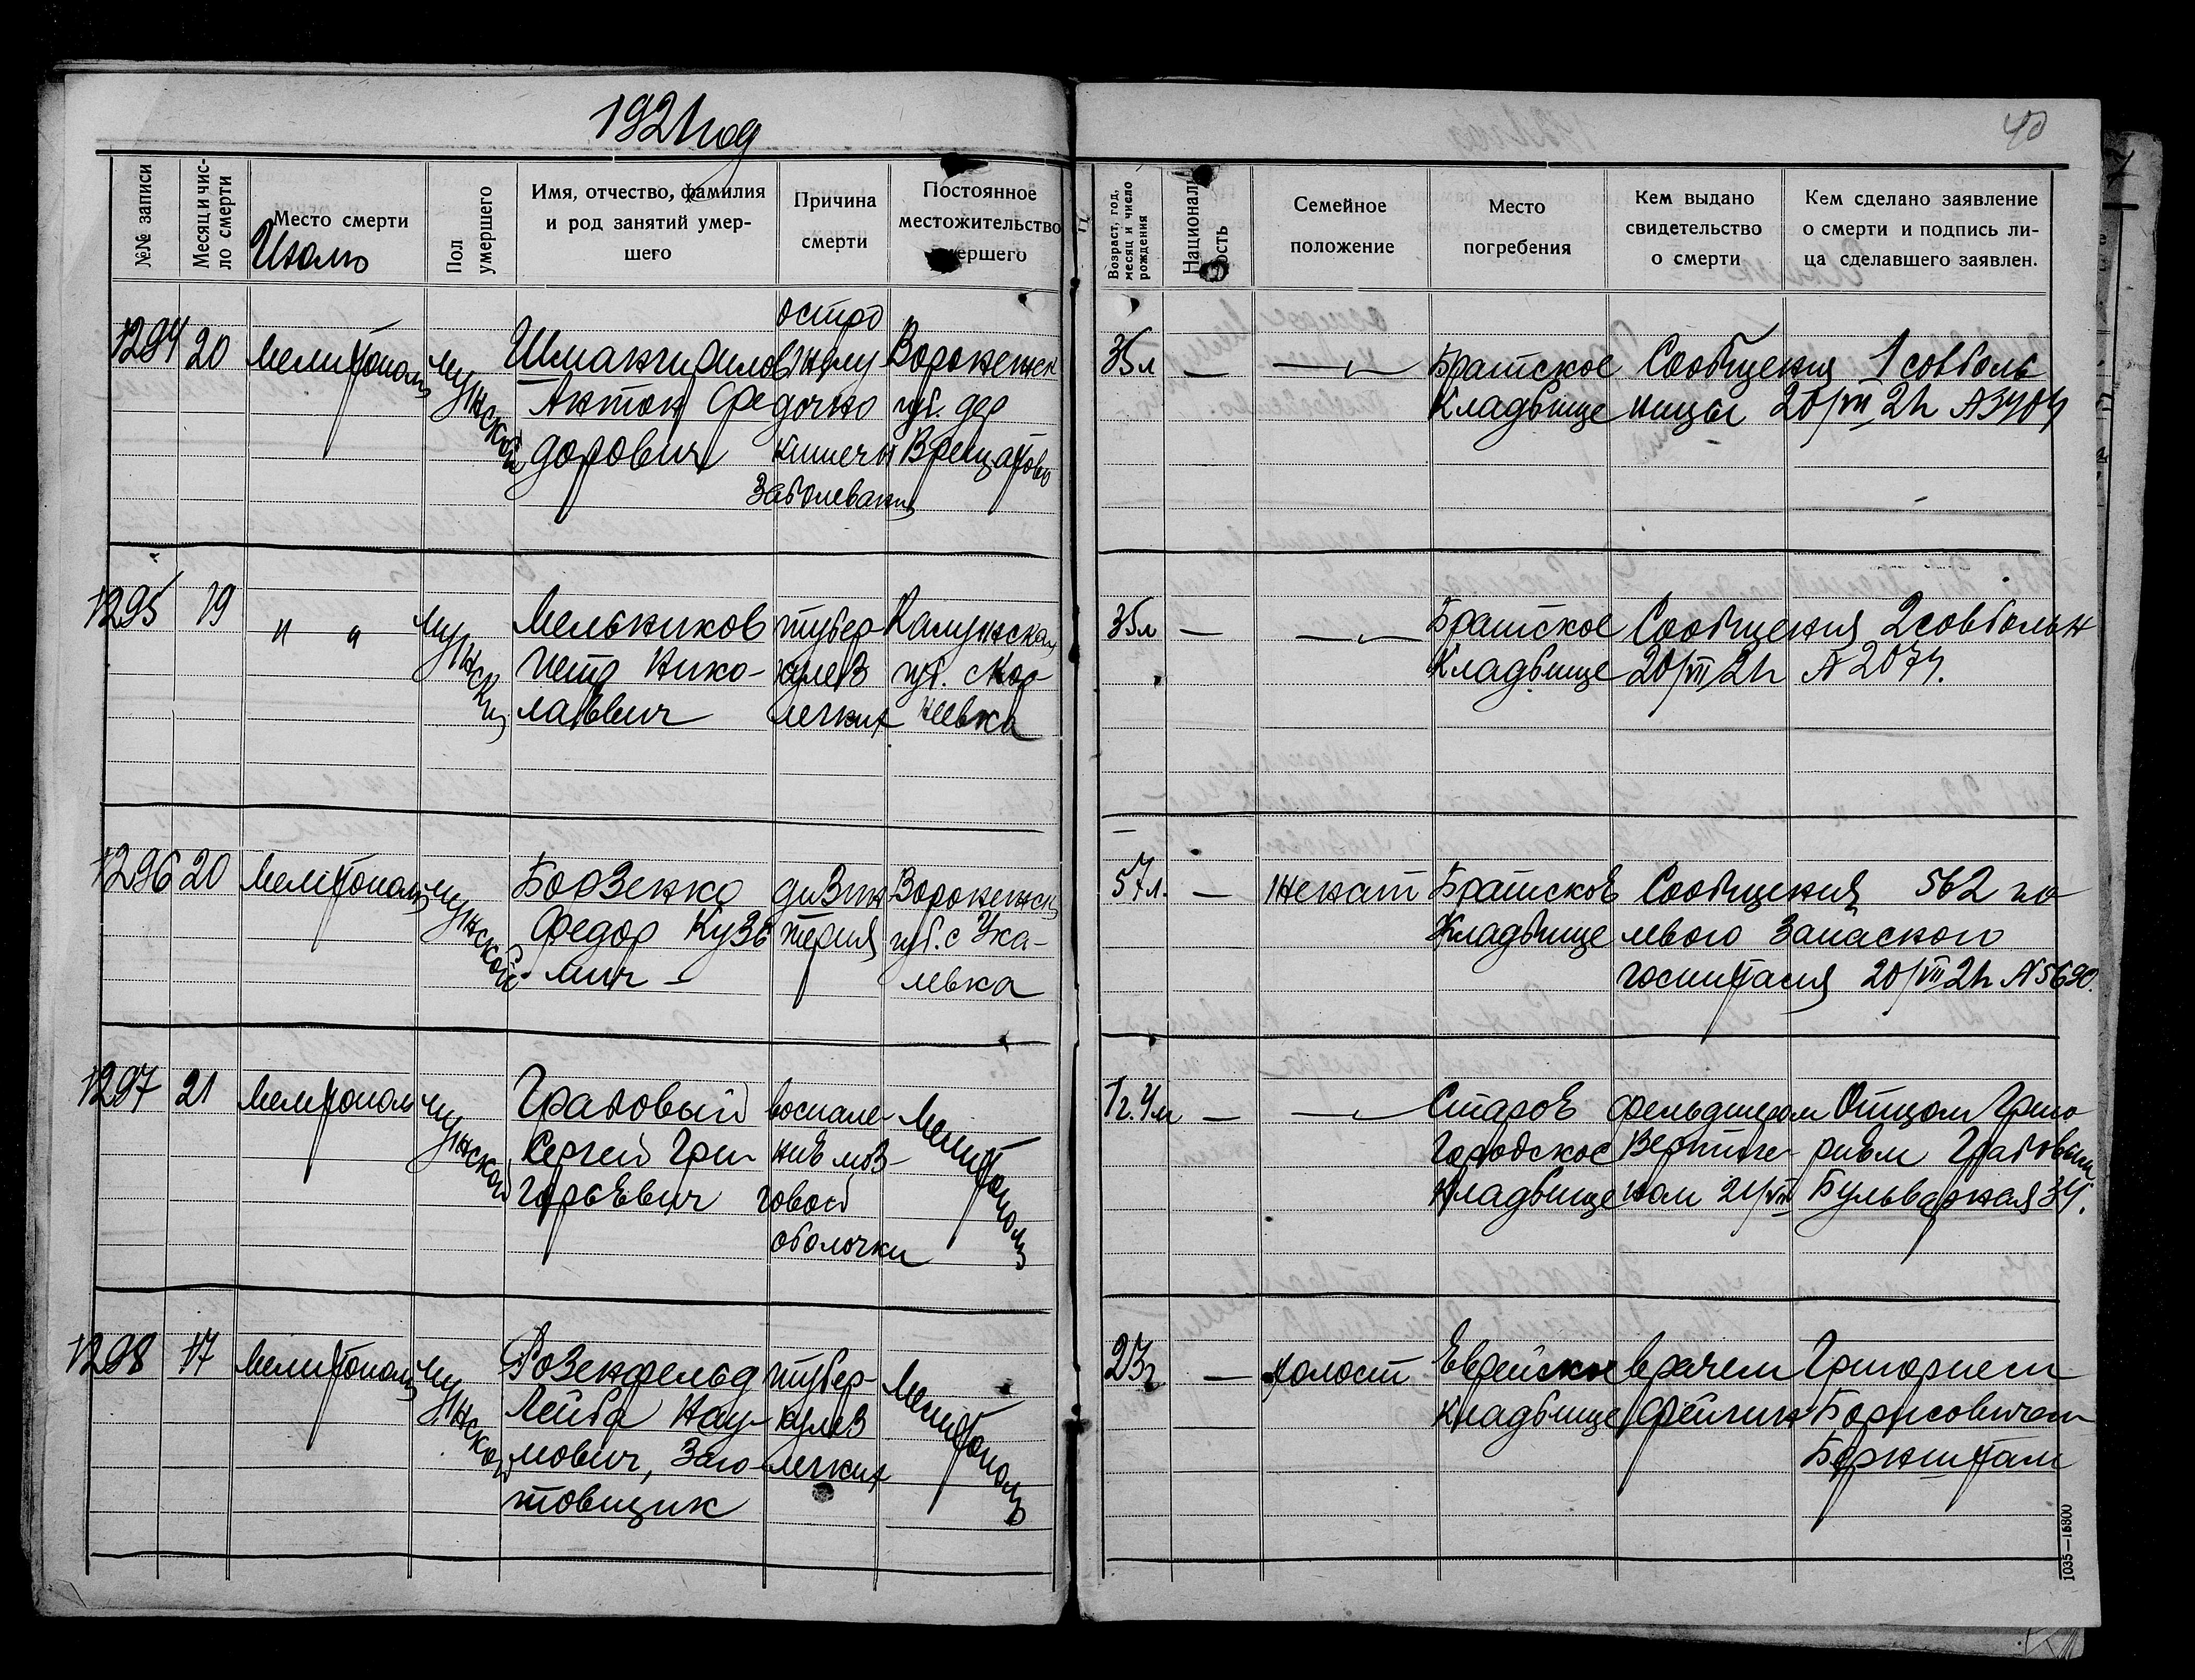 1921 год
40
№№ записи
Месяц и чис-
ло смерти
Место смерти
Июль
Пол
умершего
Имя, отчество, фамилия
и род занятий умер-
шего
Причина
смерти
Постоянное
местожительство
умершего
Возраст, год,
месяц и число
рождения
Националь
ность
Семейное
положение
Место
погребения
Кем выдано
свидетельство
о смерти
Кем сделано заявление
о смерти и подпись ли-
ца сделавшего заявлен.
1294
20
Мелитополь
мужской
Антон Фе
дорович
остро
желу
дочно
кишечн
заболевани
Воронежск
губ. дер
35 л
—
—„—
Братское
Кладбище
Сообщения 1 совболь
ницы 20/VII 21 г № 3404
1295
19
„ „
мужски
Мельников
Петр Нико-
лаевич
тубер-
кулез
легких
Калужская
губ.
35 л
—
—„—
Братское
Кладбище
Сообщения 2 совбольн
20/VII 21 г № 2074.
1296
20
Мелитополь
мужской
Борзенко
Федор Кузь
мич -
дизин
терия
Воронежск
губ. с Ука-
левка
57 л.
—
женат
Братское
Кладбище
Сообщения 562 по
левого Запасного
госпиталя 20/VII 21 г № 5690.
1297
21
Мелитополь
мужской
Грабовый
Сергей Гри-
горьевич
воспале-
ние моз-
говой
оболочки
Мелитополь
1 г. 4 м
—
—„—
Старое
Городское
Кладбище
фельдшером
ном 21/VII
Отцом Григо
рием Грабовым
Бульварная 34.
1298
17
Мелитополь
мужской
Розенфельд
Лейба Нау-
мович, Заго-
товщик
тубер-
кулез
легких
Мелитополь
23 г
—
холост
Еврейское
кладбище
врачем
Фейгин
Григорием
Борисовичем
Бернштам
1035—15800